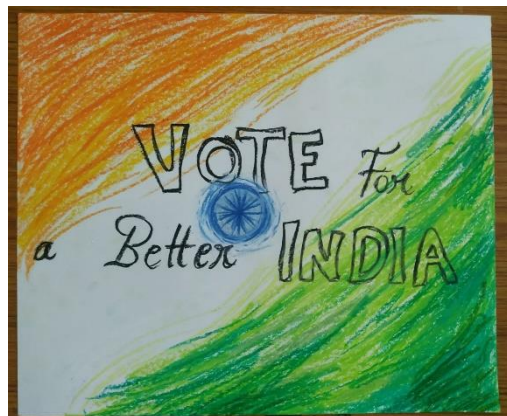 VOTE For
a Better INDIA